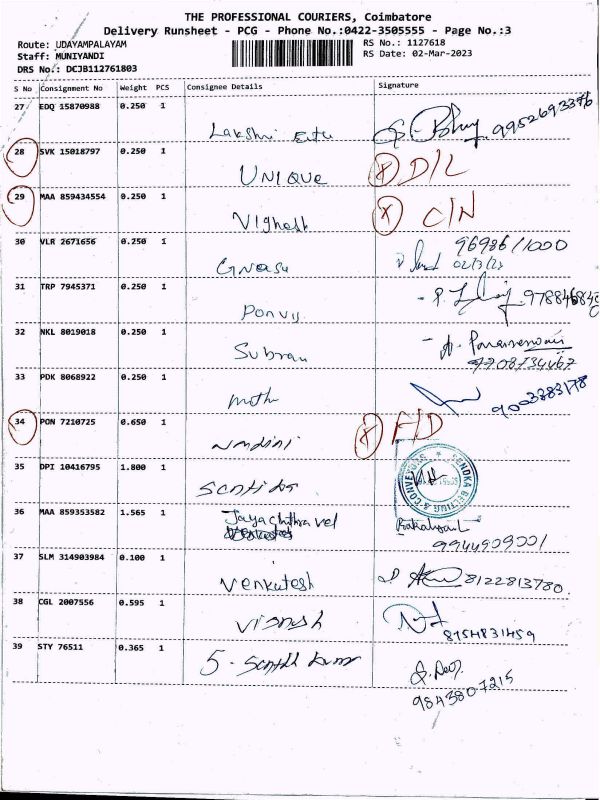 THE PROFESSIONAL COURIERS, Coimbatore
Delivery Runsheet - PCG - Phone No.:0422-3505555 - Page No.:3
Route: UDAYAMPALAYAM
RS No.: 1127618
Staff: MUNIYANDI
RS Date: 02-Mar-2023
DRS No.: DCJB112761803
S No Consignment No Weight PCS Consignee Details Signature
27 EDQ 15870988 0.250 1
Lakshmi 9952693376
28 SVK 15018797 0.250 1
UNIQUE D/L
29 MAA 859434554 0.250 1
Vighesh C/N
30 VLR 2671656 0.250 1
96986/1000
Gnasu 02/3/23
31 TRP 7945371 0.250 1
Ponvy
32 NKL 8019018 0.250 1
Subran
7708734467
33 PDK 8068922 0.250 1
9003383178
34 PON 7210725 0.650 1
F/D
35 DPI 10416795 1.800 1
36 MAA 859353582 1.565 1
Jayachithravel
9944909001
37 SLM 314903984 0.100 1
Venkatesh 8122813780
38 CGL 2007556 0.595 1
Vignesh
8154831459
39 STY 76511 0.365 1
S. Senthil Kumar
9843807215